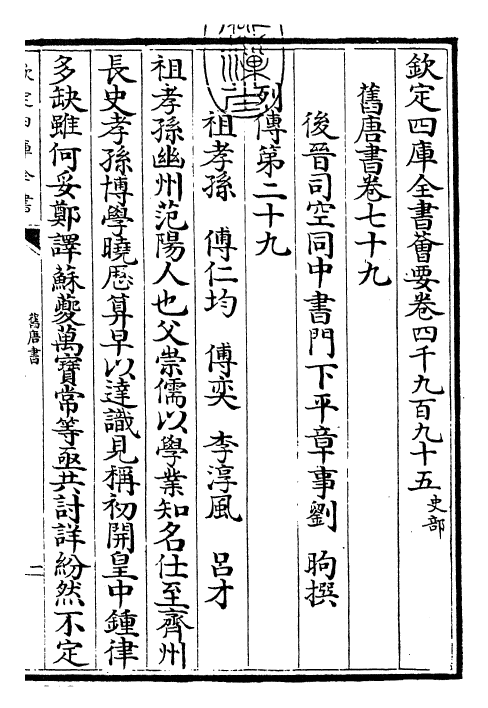 欽定四庫全書薈要卷四千九百九十五 史部
舊唐書卷七十九
後晉司空同中書門下平章事劉昫撰
列傳第二十九
祖孝孫 傅仁均 傅奕 李淳風 呂才
祖孝孫幽州范陽人也父崇儒以學業知名仕至齊州
長史孝孫博學曉歴算早以達識見稱初開皇中鍾律
多缺雖何妥鄭譯蘇夔萬寶常等亟共討詳紛然不定
欽定四庫全書
舊唐書